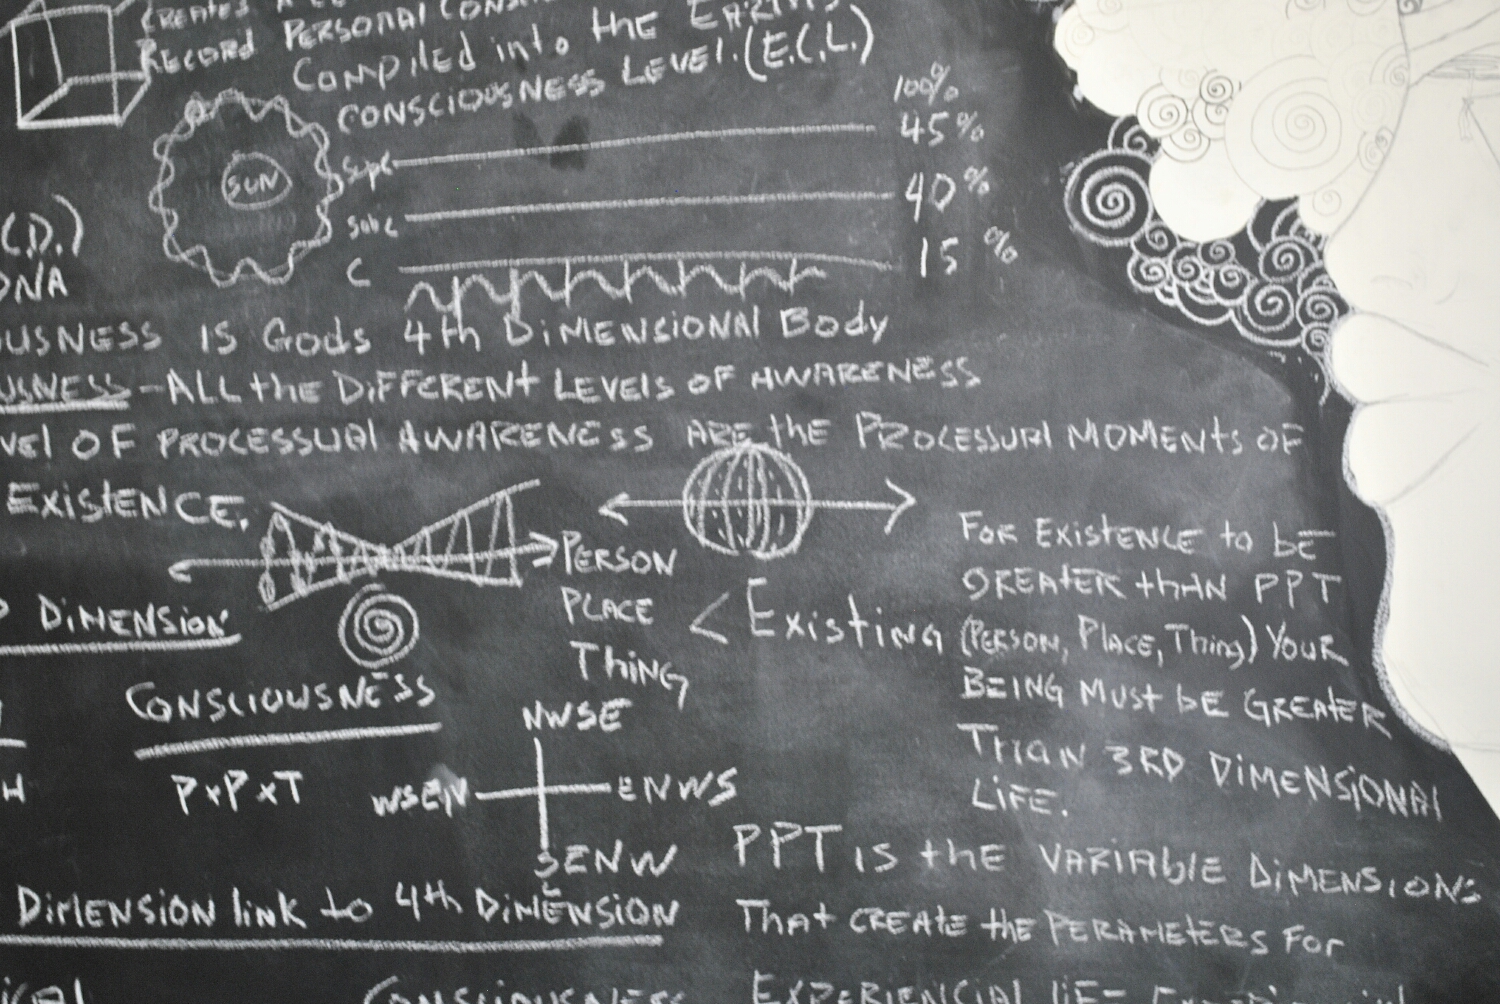 CREATES A
RECORD PERSONAL
COMPILED INTO THE EARTHS
CONSCIOUSNESS LEVEL.(E.C.L.)
100%
SUN
Supc 45%
Subc 40%
C 15%
(D.)
DNA
OUSNESS IS GODS 4th DIMENSIONAL BODY
USNESS - ALL THE DIFFERENT LEVELS OF AWARENESS
VEL OF PROCESSUAL AWARENESS ARE THE PROCESSUAL MOMENTS OF
EXISTENCE.
PERSON
PLACE < EXISTING
THING
FOR EXISTENCE TO BE
GREATER THAN PPT
(PERSON, PLACE, THING) YOUR
BEING MUST BE GREATER
THAN 3RD DIMENSIONAL
LIFE.
DIMENSION
CONSCIOUSNESS
P x P x T
NWSE
WSEN ENWS
SENW
PPT IS THE VARIABLE DIMENSIONS
THAT CREATE THE PERAMETERS FOR
DIMENSION LINK TO 4th DIMENSION
CONSCIOUSNESS
EXPERIENCIAL LIFE